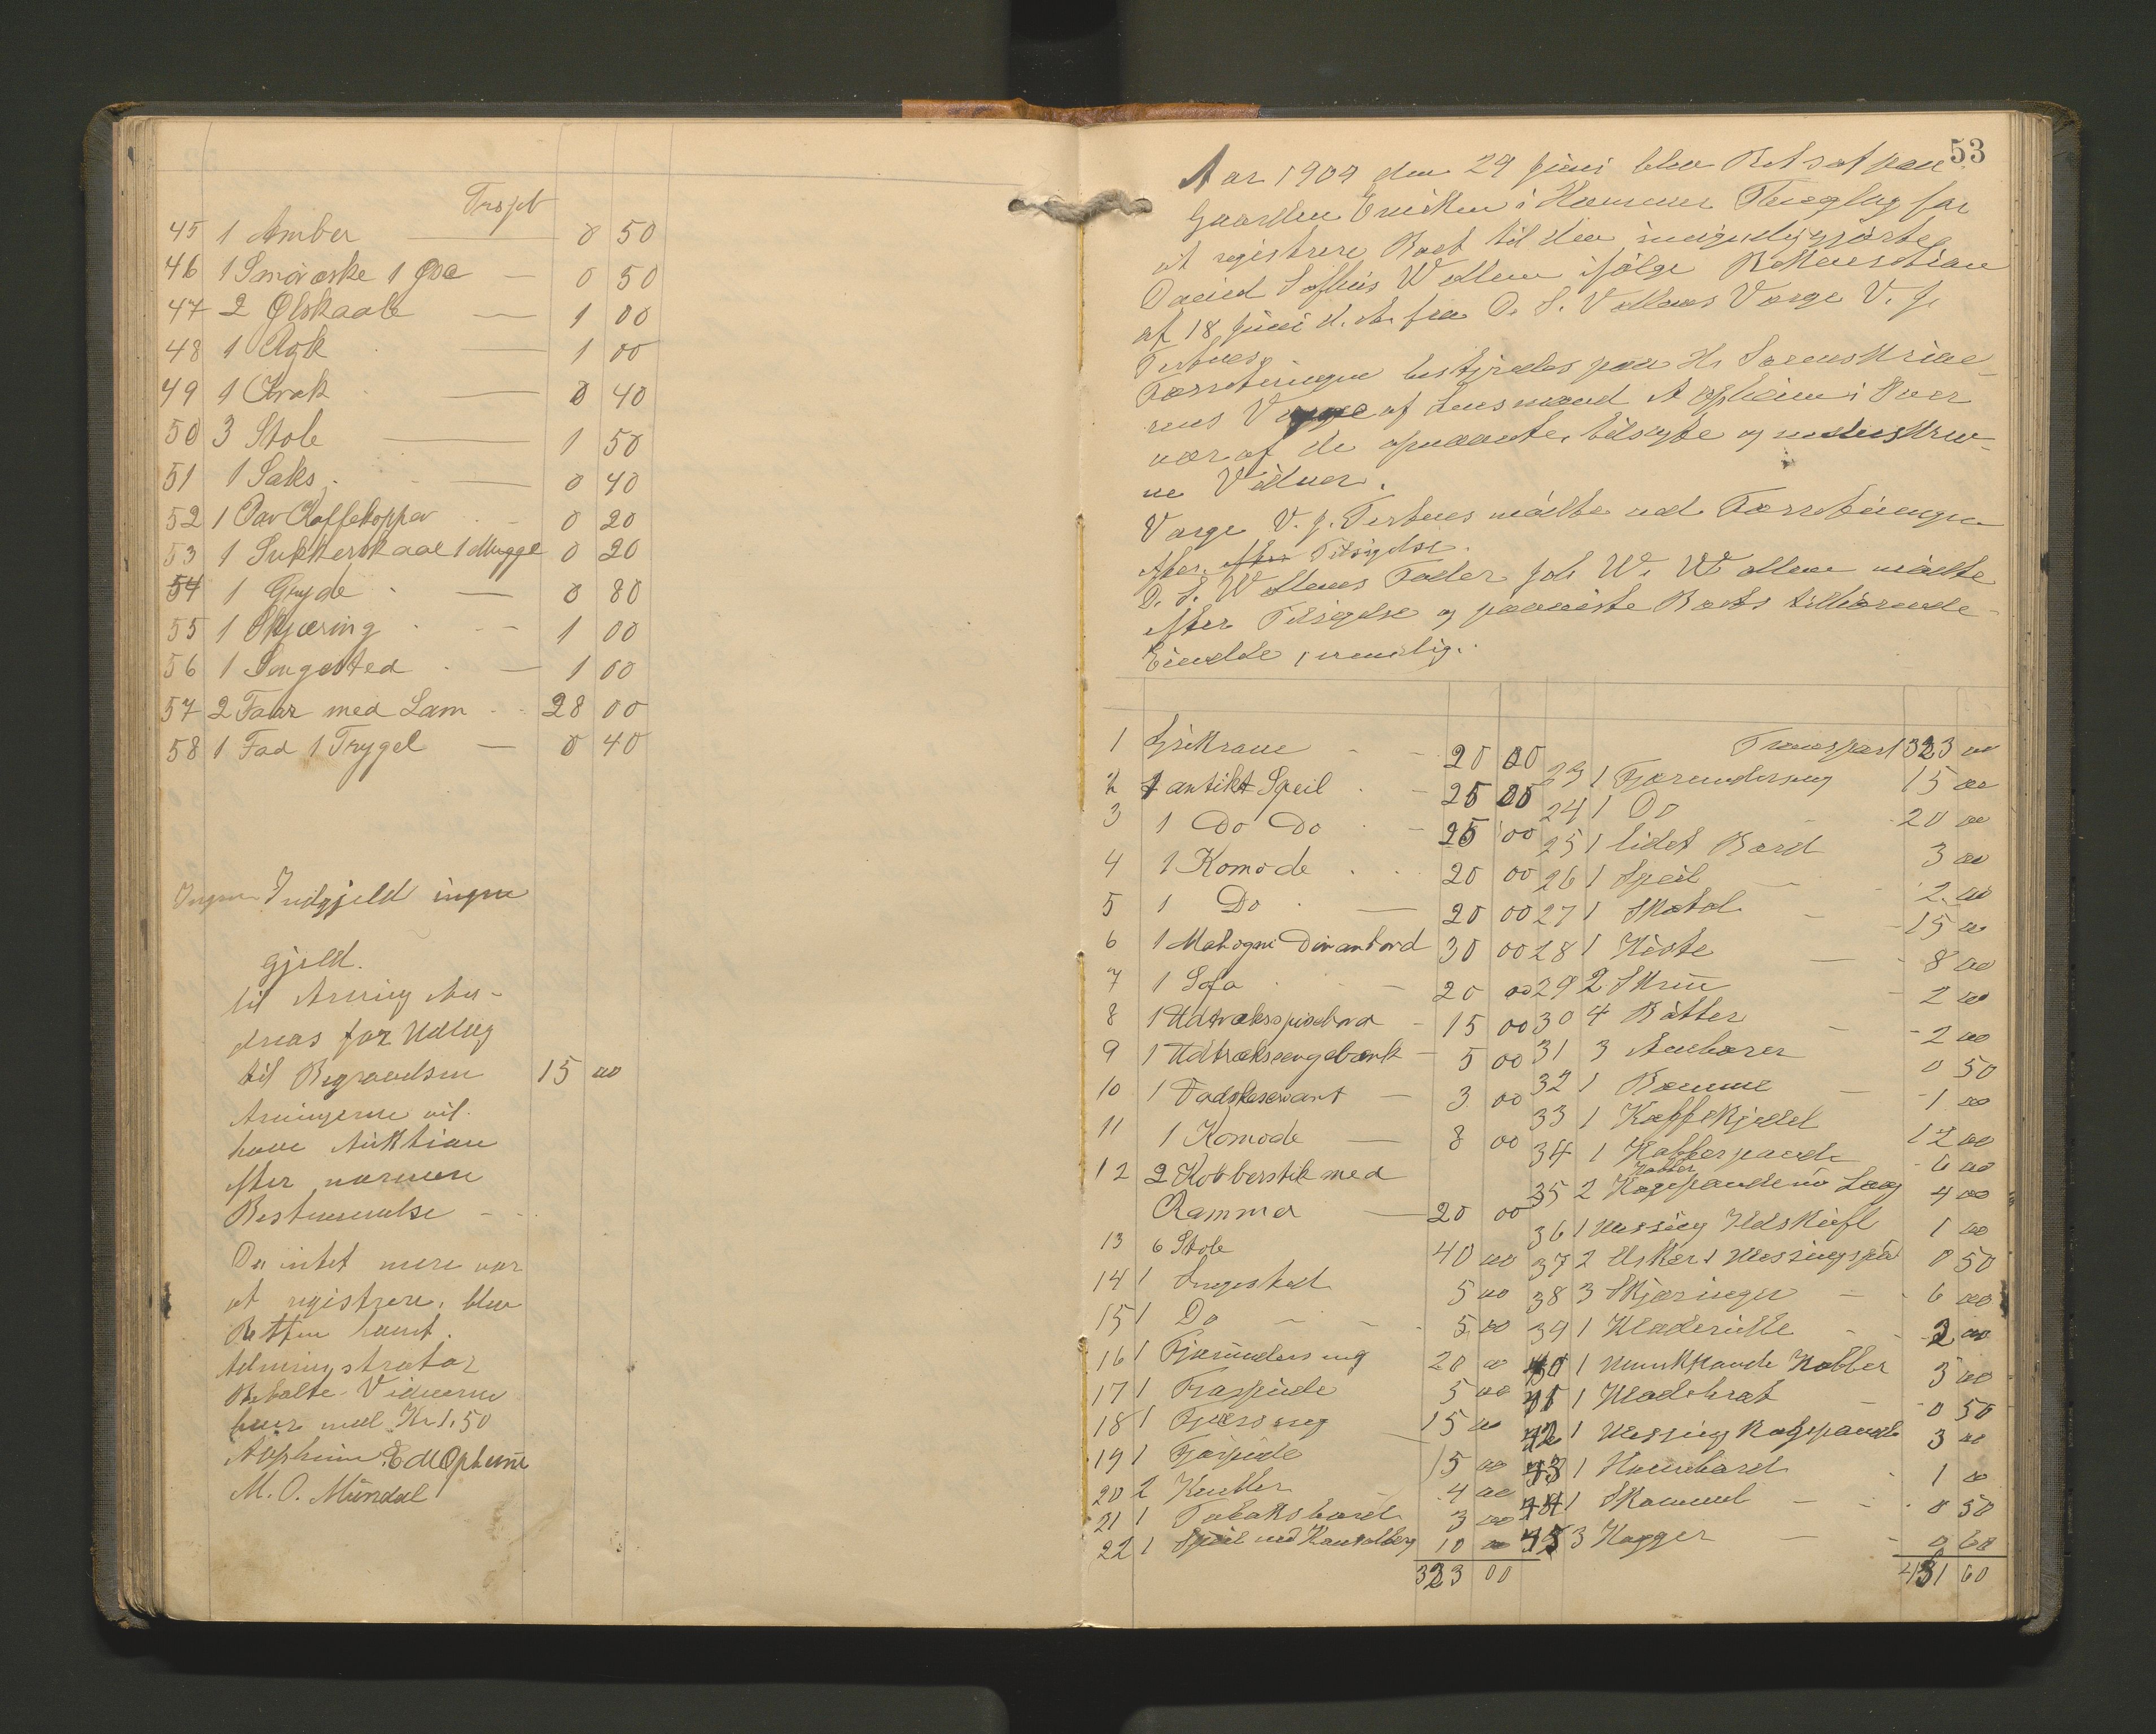 Trspt
45 1 Amber 0 50
46 1 Smøræske 1 Øse 0 50
47 2 Ølskaale 1 00
48 1 Agk 1 00
49 1 Krak 0 40
50 3 Stole 1 50
51 1 Saks 0 40
52 1 Par Kaffekopper 0 20
53 1 Sukkerskaal 1 Mugge 0 20
54 1 Gryde 0 80
55 1 Skjæring 1 00
56 1 Sengested 1 00
57 2 Faar med Lam 28 00
58 1 Fad 1 Trygel 0 40
Ingen Indgjeld ingen
gjeld.
til Arving An-
dreas for Udlæg
til Begravelsen 15 00
Arvingerne vil
have Auktion
efter nærmere
Bestemmelse
Da intet mere var
at registrere, blev
Retten hævet.
Administrator
Betalte Vidnerne
hver med Kr 1,50
A Opheim E M Opheim
M. O. Mundal
53
Aar 1904 den 29 Juni blev Ret sat paa
Gaarden i Hammer Thinglag for
at registrere Boet til den umyndiggjorte
David Sofhus Wollem ifølge Rekvisition
af 18 Juni d. A. fra D. S. Wollems Værge V. J.
Tertnes.
Forretningen bestyredes paa Hr. Sorenskrive-
rens Vegne af Lensmand A Opheim i Over
vær af de opnævnte, tilsagte og underskrev-
ne Vidner.
Værge V. J. Tertnes mødte ved Forretningen
efter Tilsigelse.
D. S. Wollems Fader Joh W. Wollem mødte
efter Tilsigelse og paaviste Boets tilhørende
Eiendele, nemlig:
1 20 00
2 1 antikt Speil 25 00
3 1 Do Do 25 00
4 1 Komode 20 00
5 1 Do 20 00
6 1 Mahogni Divanbord 30 00
7 1 Sofa 20 00
8 1 Udtræksspisebord 15 00
9 1 Udtrækssengebænk 5 00
10 1 Vadskeservant 3 00
11 1 Komode 8 00
12 2 Kobberstik med
Rammer 20 00
13 6 Stole 40 00
14 1 Sengested 5 00
15 1 Do 5 00
16 1 Fjærunderseng 20 00
17 1 5 00
18 1 15 00
19 1 15 00
20 2 4 00
21 1 Tobaksbord 3 00
22 1 Speil med 10 00
323 00
Transport 323 00
23 1 Fjærunderseng 15 00
24 1 Do 20 00
25 1 lidet Bord 3 00
26 1 Speil 2 00
27 1 Skatol 15 00
28 1 Kiste 8 00
29 2 Skrin 2 00
30 4 Bøtter 2 00
31 3 Ambarer 0 50
32 1 1 00
33 1 Kaffekjedel 12 00
34 1 Kobberpande 6 00
35 2 Kobber Kagepande m Laag 4 00
36 1 Messing Ildskuffe 1 00
37 2 Æsker 1 0 50
38 3 Skjæringer 6 00
39 1 Klæderulle 2 00
40 1 Munkpande Kobber 3 00
41 1 0 50
42 1 Messing Kagepande 3 00
43 1 1 00
44 1 Skammel 0 50
45 3 Kagger 0 60
431 60